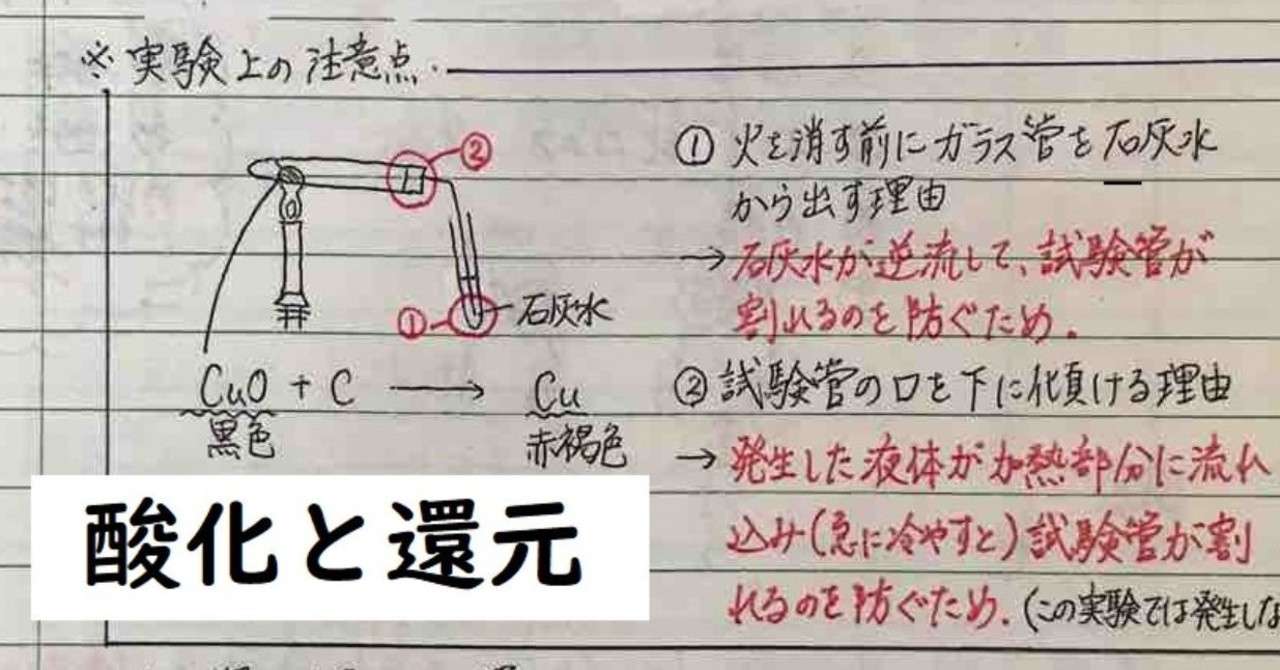 ※実験上の注意点.
②
① 火を消す前にガラス管を石灰水
から出す理由
→石灰水が逆流して、試験管が
割れるのを防ぐため.
①
石灰水
CuO + C → Cu
黒色
赤褐色
②試験管の口を下に傾ける理由
→発生した液体が加熱部分に流れ
込み(急に冷やすと)試験管が割
れるのを防ぐため.(この実験では発生しな
酸化と還元